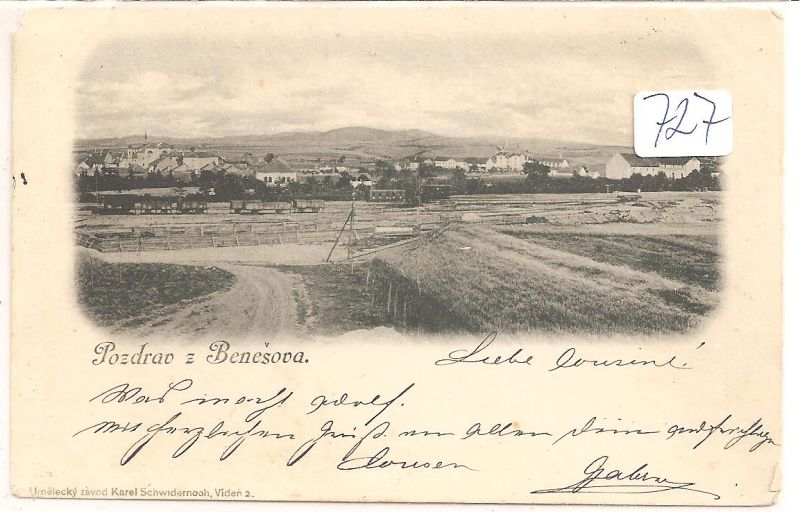 727
Pozdrav z Benešova.
Liebe Cousine!
Was macht Adolf.
Mit herzlichen Gruß an Allen Dein aufrichtiger
Cousen
Umělecký závod Karel Schwidernoch, Vídeň 2.